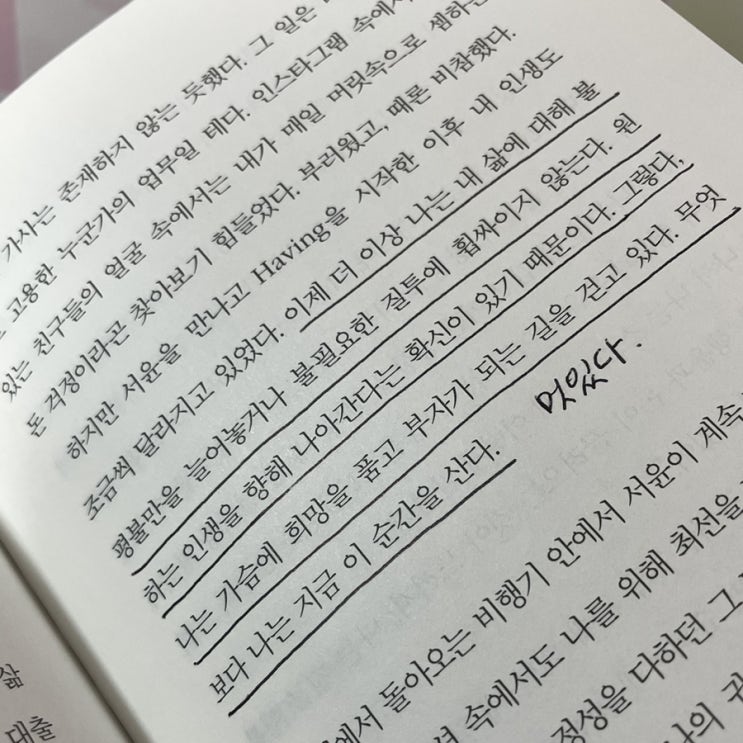 가사는 존재하지 않는 듯했다. 그 일은
고용한 누군가의 업무일 테다. 인스타그램 속에서
있는 친구들의 얼굴 속에서는 내가 매일 머릿속으로 셈하는
돈 걱정이라곤 찾아보기 힘들었다. 부러웠고, 때론 비참했다.
하지만 서윤을 만나고 Having을 시작한 이후 내 인생도
조금씩 달라지고 있었다. 이제 더 이상 나는 내 삶에 대해 불
평불만을 늘어놓거나 불필요한 질투에 휩싸이지 않는다. 원
하는 인생을 향해 나아간다는 확신이 있기 때문이다. 그렇다,
나는 가슴에 희망을 품고 부자가 되는 길을 걷고 있다. 무엇
보다 나는 지금 이 순간을 산다.
멋있다.
에서 돌아오는 비행기 안에서 서윤이 계속
속에서도 나를 위해 최선을
정성을 다하던 그
나의 귀
삶
대출